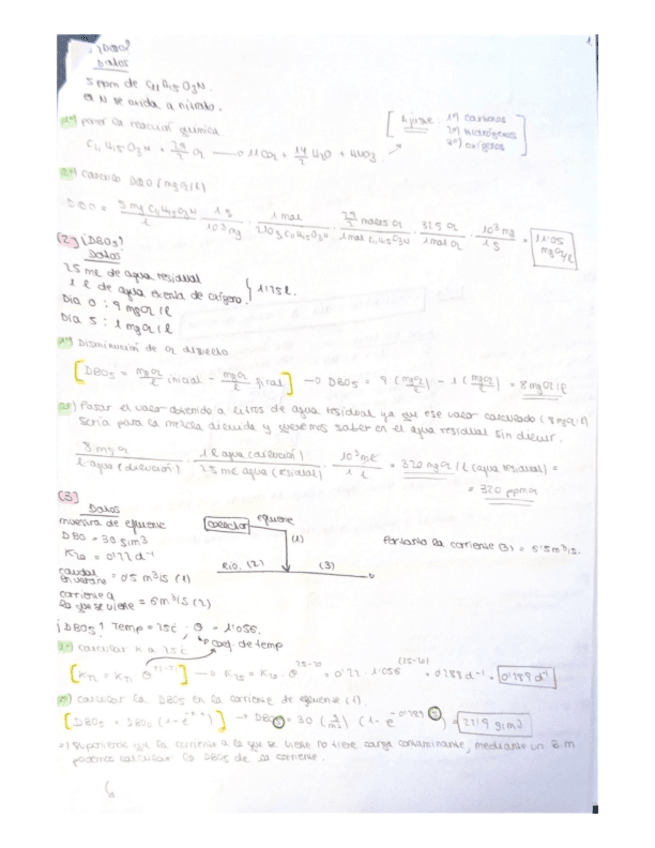 1.
¿DBO?
Datos
5 ppm de C11H15O3N.
el N se oxida a nitrato.
1º) poner la reacción química
[Ajuste: 11) carbonos
2º) hidrógenos
3º) oxígenos]
C11H15O3N + 29/2 O2 → 11CO2 + 14/2 H2O + HNO3
2º) Calculo DBO (mgO2/l)
DBO = 5 mg C11H15O3N / l · 1 g / 10³ mg · 1 mol / 210 g C11H15O3N · 29/2 moles O2 / 1 mol C11H15O3N · 32 g O2 / 1 mol O2 · 10³ mg / 1 g = 11'05 mgO2/l
(2) ¿DBO5?
Datos
25 ml de agua residual
1 l de agua exenta de oxígeno. } 1'25 l.
Día 0 : 9 mgO2/l
Día 5 : 1 mgO2/l
1º) Disminución de O2 disuelto
[DBO5 = mgO2/l inicial - mgO2/l final] → DBO5 = 9 (mgO2/l) - 1 (mgO2/l) = 8 mgO2/l
2º) Pasar el valor obtenido a litros de agua residual ya que ese valor calculado (8 mgO2/l)
sería para la mezcla diluida y queremos saber en el agua residual sin diluir.
8 mg O2 / l agua (disolución) · 1 l agua (disolución) / 25 ml agua (residual) · 10³ ml / 1 l = 320 mgO2/l (agua residual) =
= 320 ppm O2
(3)
Datos
muestra de efluente
DBO = 30 g/m3
K20 = 0'22 d⁻¹
caudal
en verano = 0'5 m³/s (1)
corriente a
la que se vierte = 6 m³/s (2)
colector efluente
(1)
Río. (2) (3)
Por tanto la corriente (3) = 6'5 m³/s.
¿DBO5? Temp = 25ºC · θ = 1'056.
coef. de temp
1º) calcular K a 25ºC
→ K25 = K20 · θ^25-20 = 0'22 · 1'056^(25-20) = 0'289 d⁻¹ = 0'289 d⁻¹
2º) calcular la DBO5 en la corriente de efluente (1).
→ DBO5 = 30 (g/m3) (1 - e^-0'289·5) = 22'9 g/m3
Suponemos que la corriente a la que se vierte no tiene carga contaminante, mediante un B.m
podemos calcular la DBO5 de la corriente.